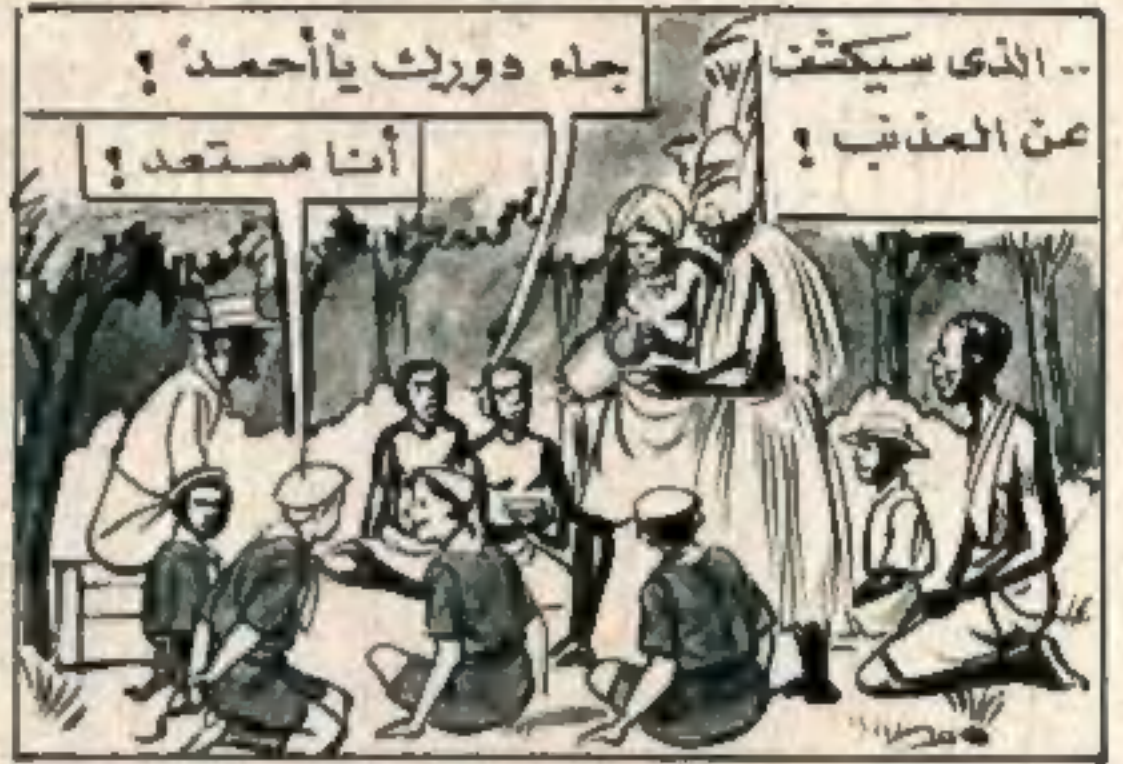 .. الذى سيكشف
عن المذنب !
جاء دورك يا أحمد !
أنا مستعد !